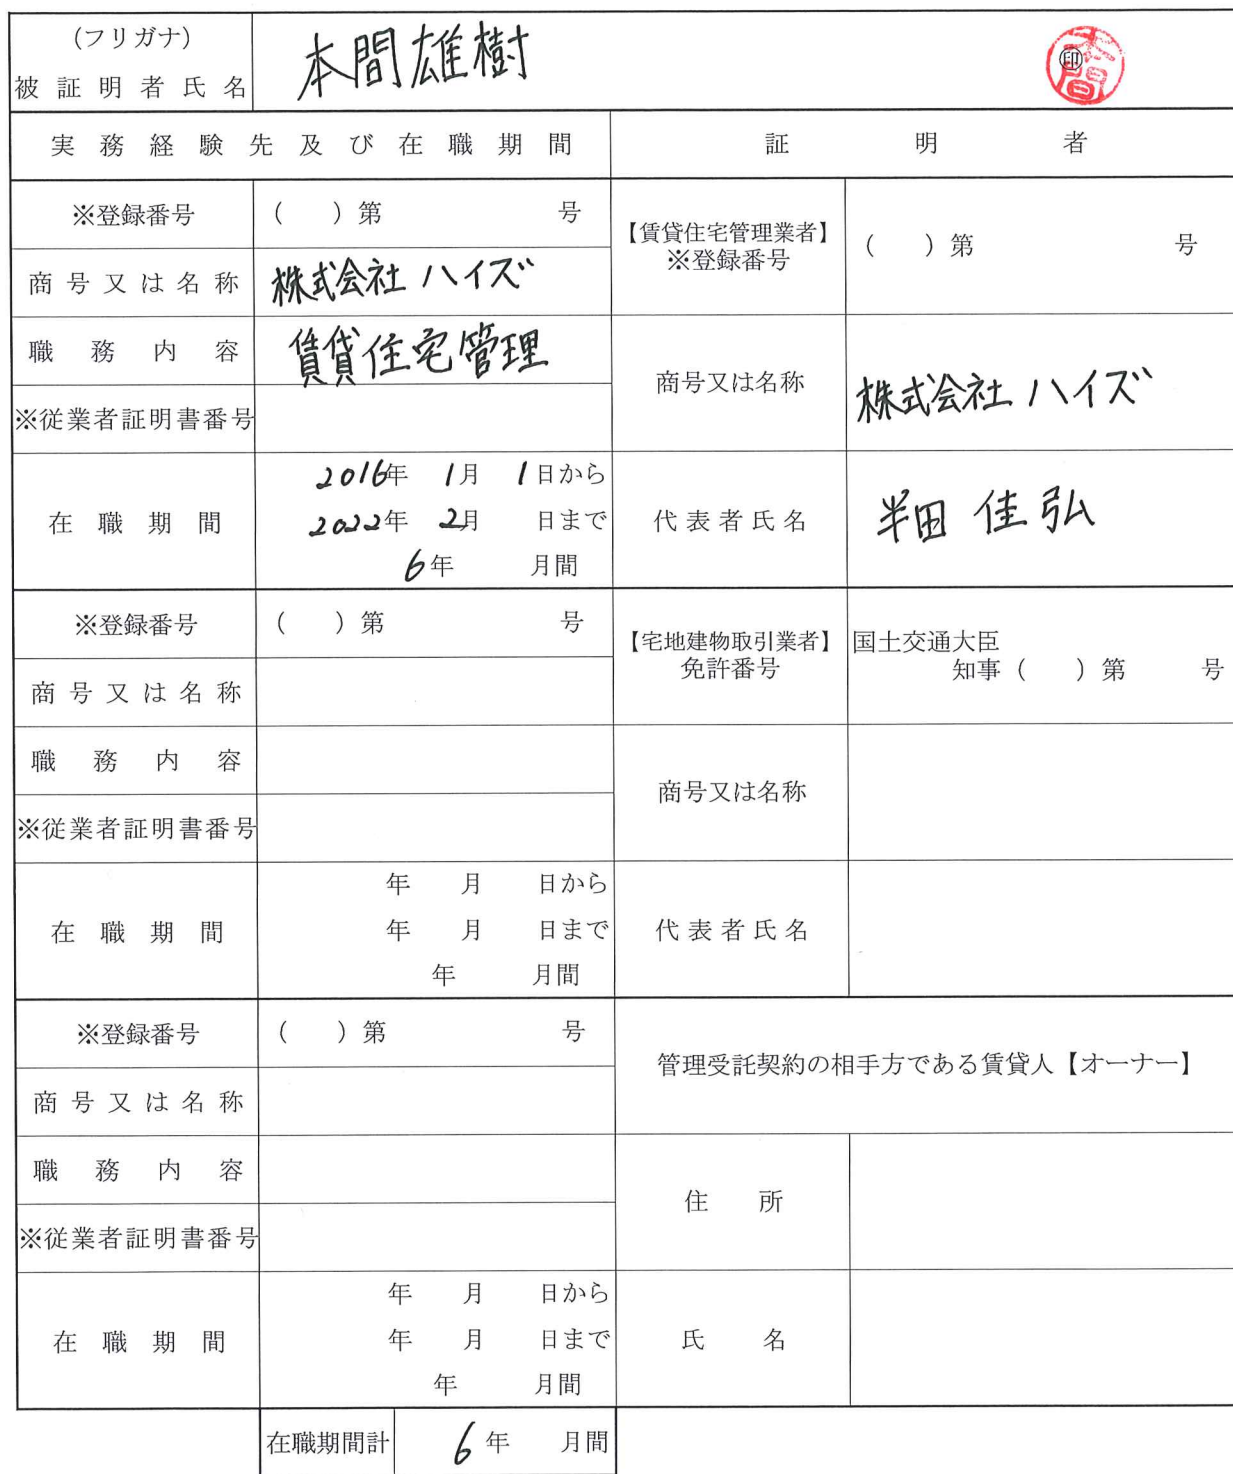 (フリガナ)
被証明者氏名 本間雄樹 ㊞ 本間
実務経験先及び在職期間 証明者
※登録番号 ( )第 号
【賃貸住宅管理業者】
※登録番号 ( )第 号
商号又は名称 株式会社 ハイズ
職務内容 賃貸住宅管理
商号又は名称 株式会社 ハイズ
※従業者証明書番号
在職期間
2016年 1月 1日から
2022年 2月 日まで
6年 月間
代表者氏名 半田 佳弘
※登録番号 ( )第 号
【宅地建物取引業者】
免許番号
国土交通大臣
知事( )第 号
商号又は名称
職務内容
商号又は名称
※従業者証明書番号
在職期間
年 月 日から
年 月 日まで
年 月間
代表者氏名
※登録番号 ( )第 号
管理受託契約の相手方である賃貸人【オーナー】
商号又は名称
職務内容
住所
※従業者証明書番号
在職期間
年 月 日から
年 月 日まで
年 月間
氏名
在職期間計 6年 月間